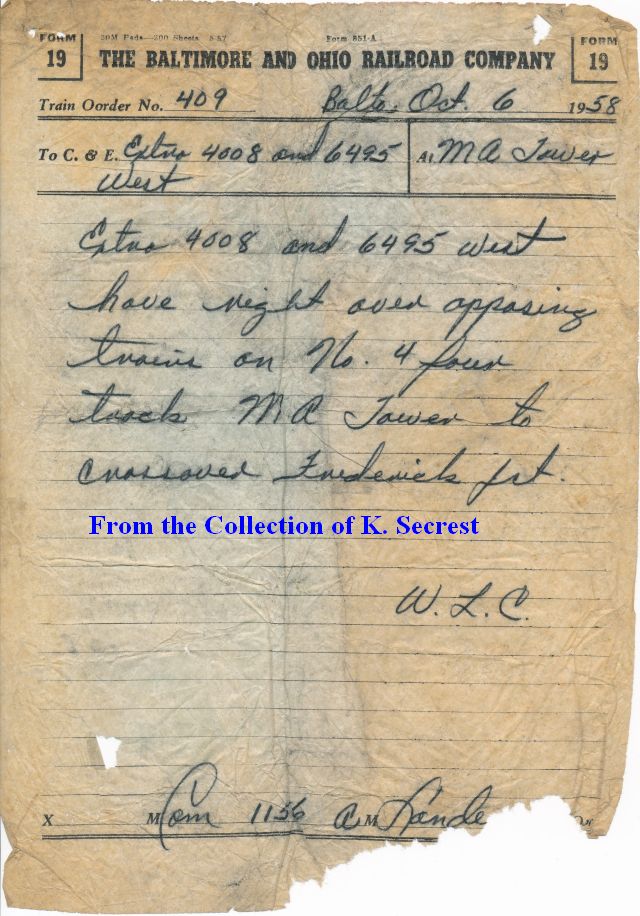 FORM 19
20M Pads—200 Sheets 5-57 Form 851-A
THE BALTIMORE AND OHIO RAILROAD COMPANY
FORM 19
Train Oorder No. 409 Balto. Oct. 6 1958
To C. & E. Extra 4008 and 6495 At MA Tower
West
Extra 4008 and 6495 west
have right over opposing
trains on No. 4 four
track MA Tower to
crossover Frederick jct.
From the Collection of K. Secrest
W. L. C.
X M Com 1156 A M